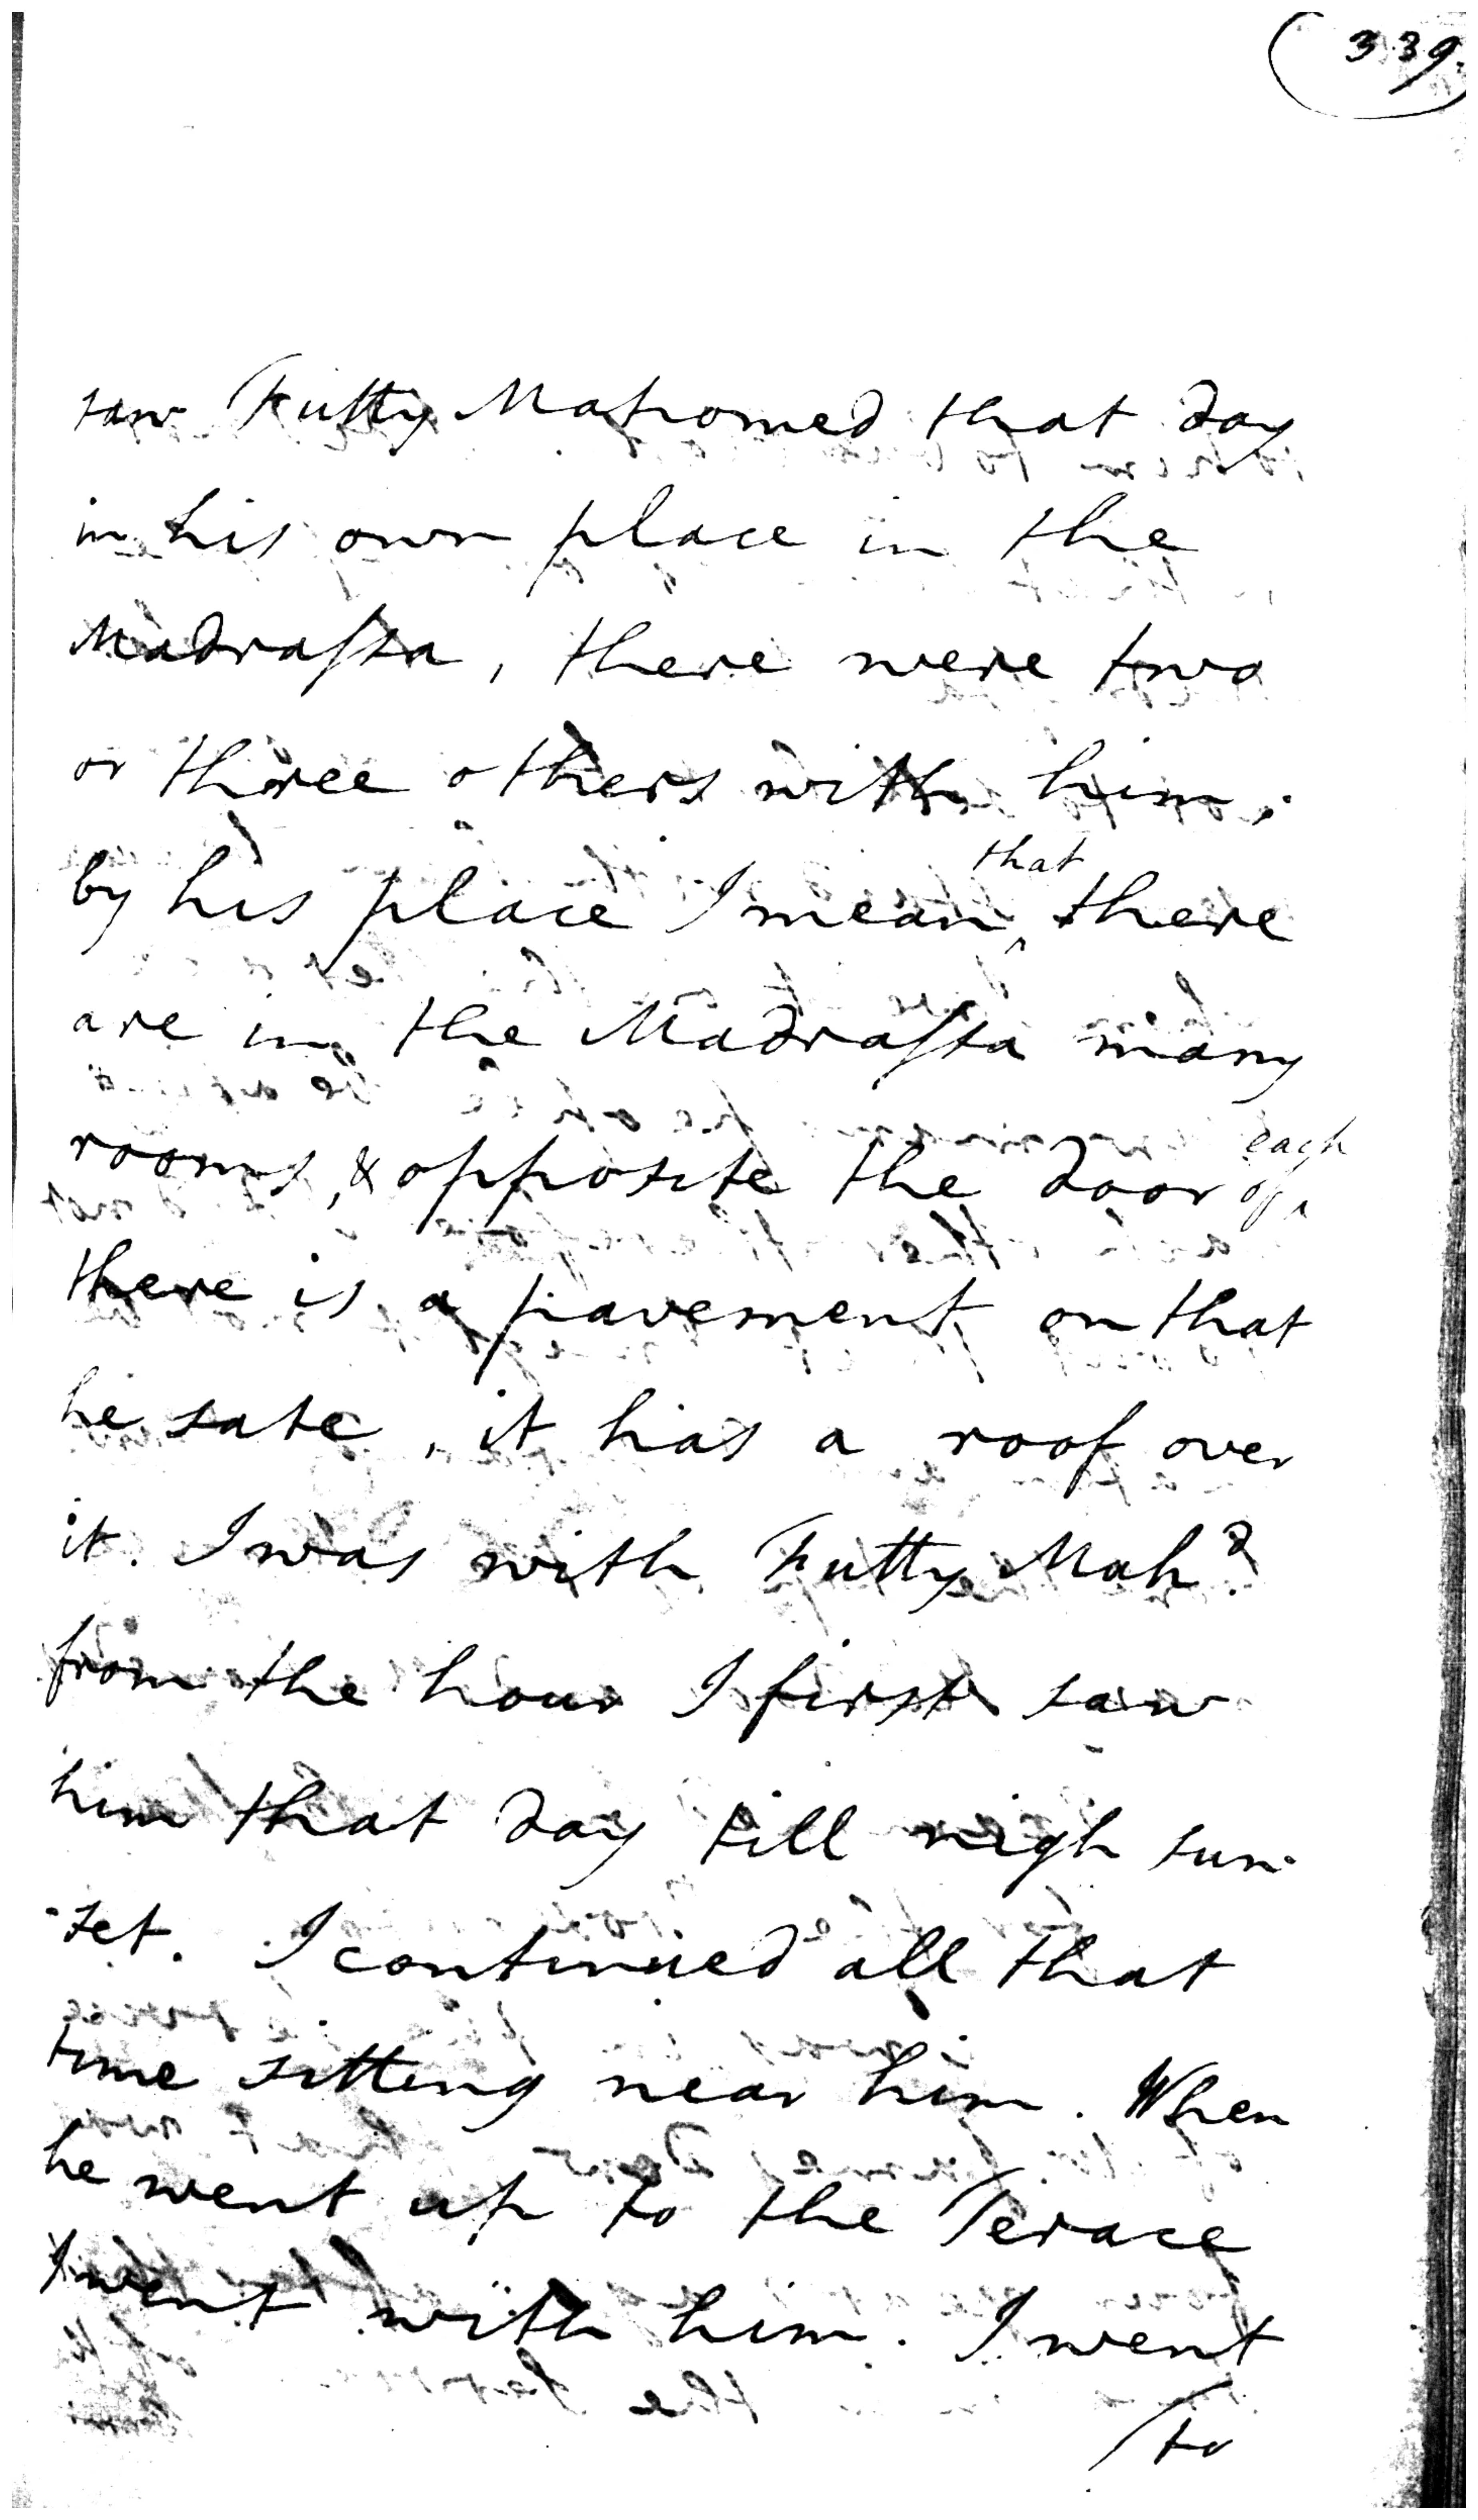 339.
saw Futty Mahomed that day
in his own place in the
Madrassa, there were two
or three others with him,
by his place I mean that there
are in the Madrassa many
rooms, & opposite the door of each
there is a pavement on that
he sate, it has a roof over
it. I was with Futty Mahd.
from the hour I first saw
him that day till nigh sun-
-set. I continued all that
time sitting near him. When
he went up to the Terace
I went with him. I went
to